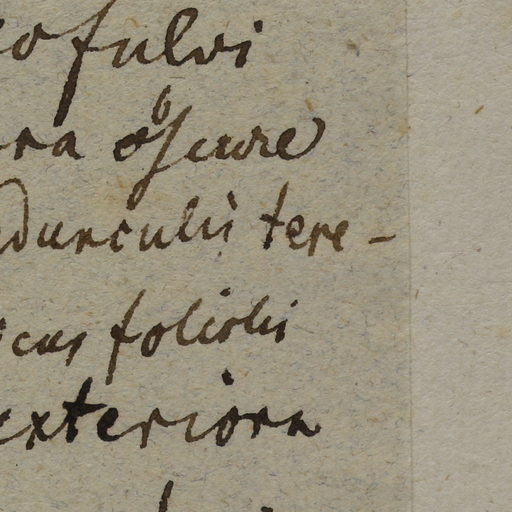 ofulvi
ra obscure
dunculis tere-
cus foliolis
exteriora